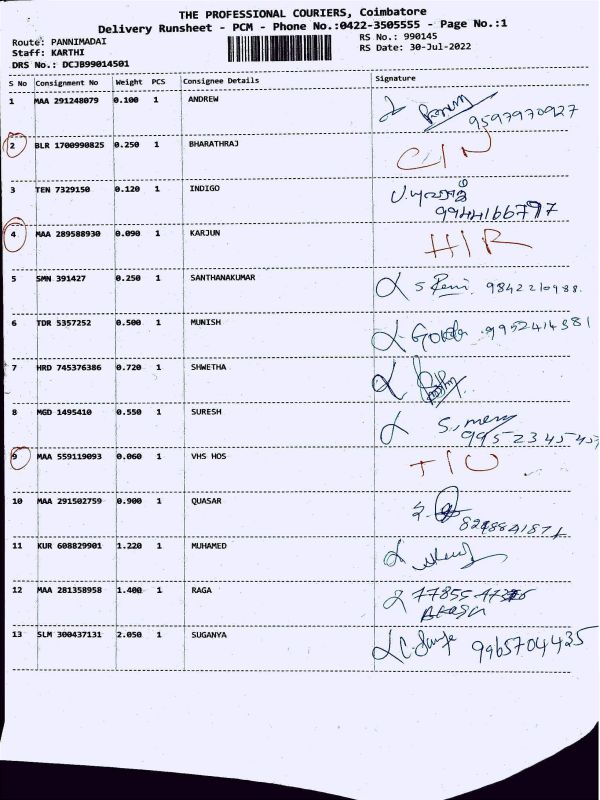 THE PROFESSIONAL COURIERS, Coimbatore
Delivery Runsheet - PCM - Phone No.:0422-3505555 - Page No.:1
Route: PANNIMADAI RS No.: 990145
Staff: KARTHI RS Date: 30-Jul-2022
DRS No.: DCJB99014501
S No Consignment No Weight PCS Consignee Details Signature
1 MAA 291248079 0.100 1 ANDREW 9597970927
2 BLR 1700990825 0.250 1 BHARATHRAJ
3 TEN 7329150 0.120 1 INDIGO
9944166797
4 MAA 289588930 0.090 1 KARJUN
5 SMN 391427 0.250 1 SANTHANAKUMAR 9842210988.
6 TDR 5357252 0.500 1 MUNISH 9952414381
7 HRD 745376386 0.720 1 SHWETHA
8 MGD 1495410 0.550 1 SURESH
9 MAA 559119093 0.060 1 VHS HOS
10 MAA 291502759 0.900 1 QUASAR
11 KUR 608829901 1.220 1 MUHAMED
12 MAA 281358958 1.400 1 RAGA
13 SLM 300437131 2.050 1 SUGANYA 9965704435